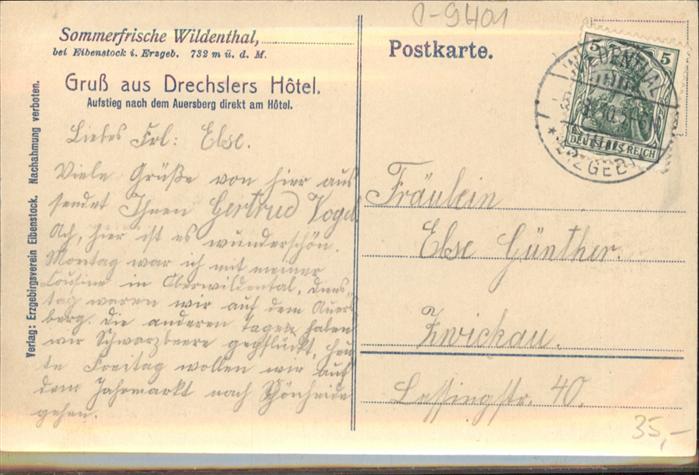 0-9401
Sommerfrische Wildenthal,
bei Eibenstock i. Erzgeb. 732 m ü. d. M.
Gruß aus Drechslers Hôtel.
Aufstieg nach dem Auersberg direkt am Hôtel.
Verlag: Erzgebirgsverein Eibenstock. Nachahmung verboten.
Liebes Frl: Else.
Viele Grüße von hier aus
sendet Ihnen Gertrud Vogel
Ach, hier ist es wunderschön.
Montag war ich mit meiner
Cousine in Oberwildental, Diens-
tag waren wir auf dem Auers-
berg. Die anderen Tage haben
wir Schwarzbeere gepflückt, heu-
te Freitag wollen wir auf
dem Jahrmarkt nach Schönheide
gehen.
Postkarte.
5 5
DEUTSCHES REICH
WILDENTHAL
ERZGEB.
Fräulein
Else Günther.
Zwickau.
Lessingstr. 40.
35,-